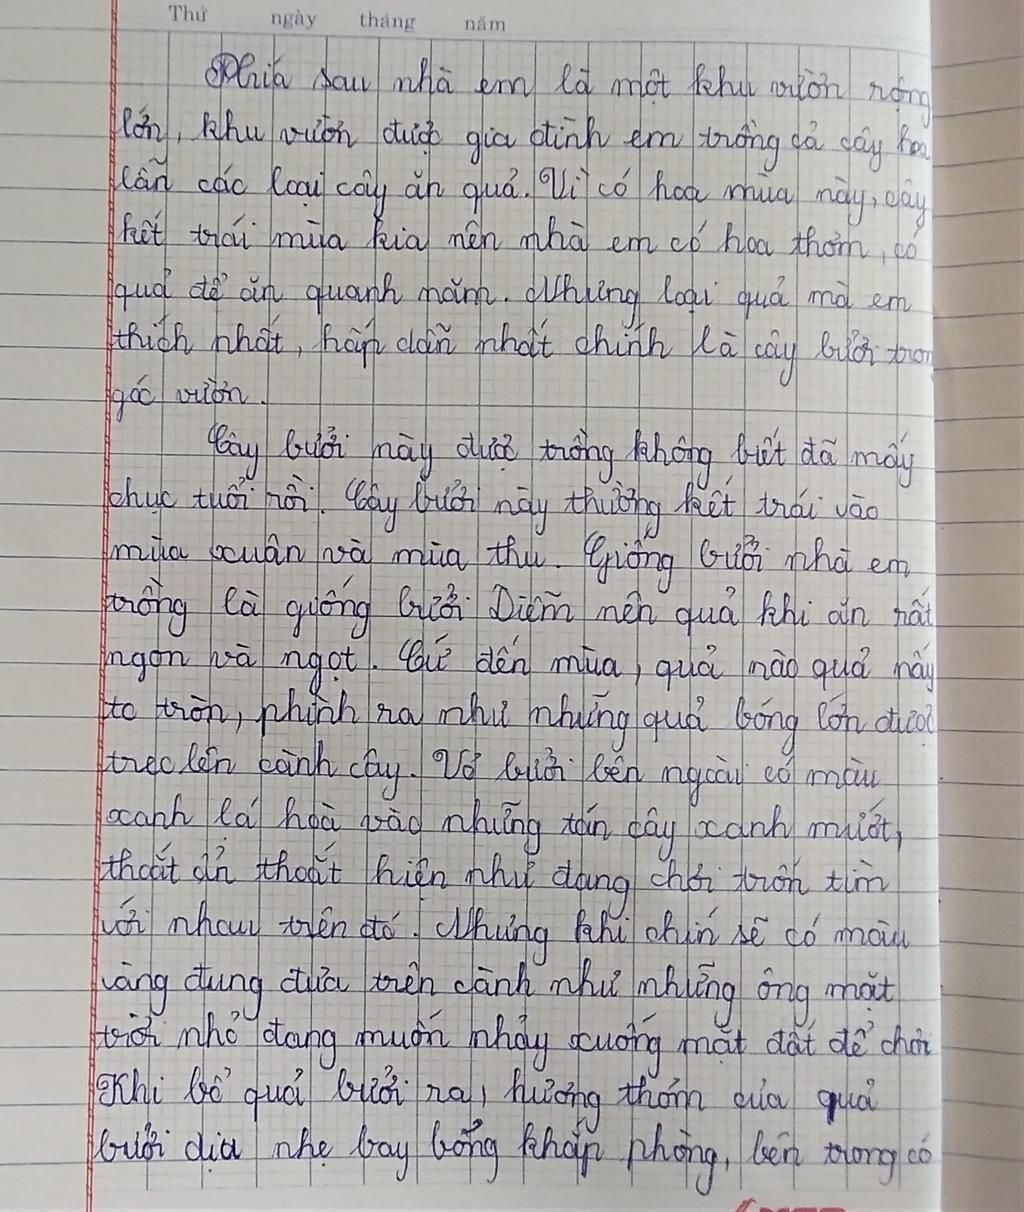 Thứ ngày tháng năm
Phía sau nhà em là một khu vườn rộng
lớn, khu vườn được gia đình em trồng cả cây hoa
lẫn các loại cây ăn quả. Vì có hoa mùa này, cây
kết trái mùa kia nên nhà em có hoa thơm, có
quả để ăn quanh năm. Nhưng loại quả mà em
thích nhất, hấp dẫn nhất chính là cây bưởi tron
góc vườn.
Cây bưởi này được trồng không biết đã mấy
chục tuổi rồi. Cây bưởi này thường kết trái vào
mùa xuân và mùa thu. Giống bưởi nhà em
trồng là giống bưởi Diễm nên quả khi ăn rất
ngon và ngọt. Cứ đến mùa, quả nào quả nấy
to tròn, phình ra như những quả bóng lớn được
treo lên cành cây. Vỏ bưởi bên ngoài có màu
xanh lá hoà vào những tán cây xanh mướt,
thoắt ẩn thoắt hiện như đang chơi trốn tìm
với nhau trên đó. Nhưng khi chín sẽ có màu
vàng đung đưa trên cành như những ông mặt
trời nhỏ đang muốn nhảy xuống mặt đất để chơi
Khi bổ quả bưởi ra, hương thơm của quả
bưởi dịu nhẹ bay bổng khắp phòng, bên trong có